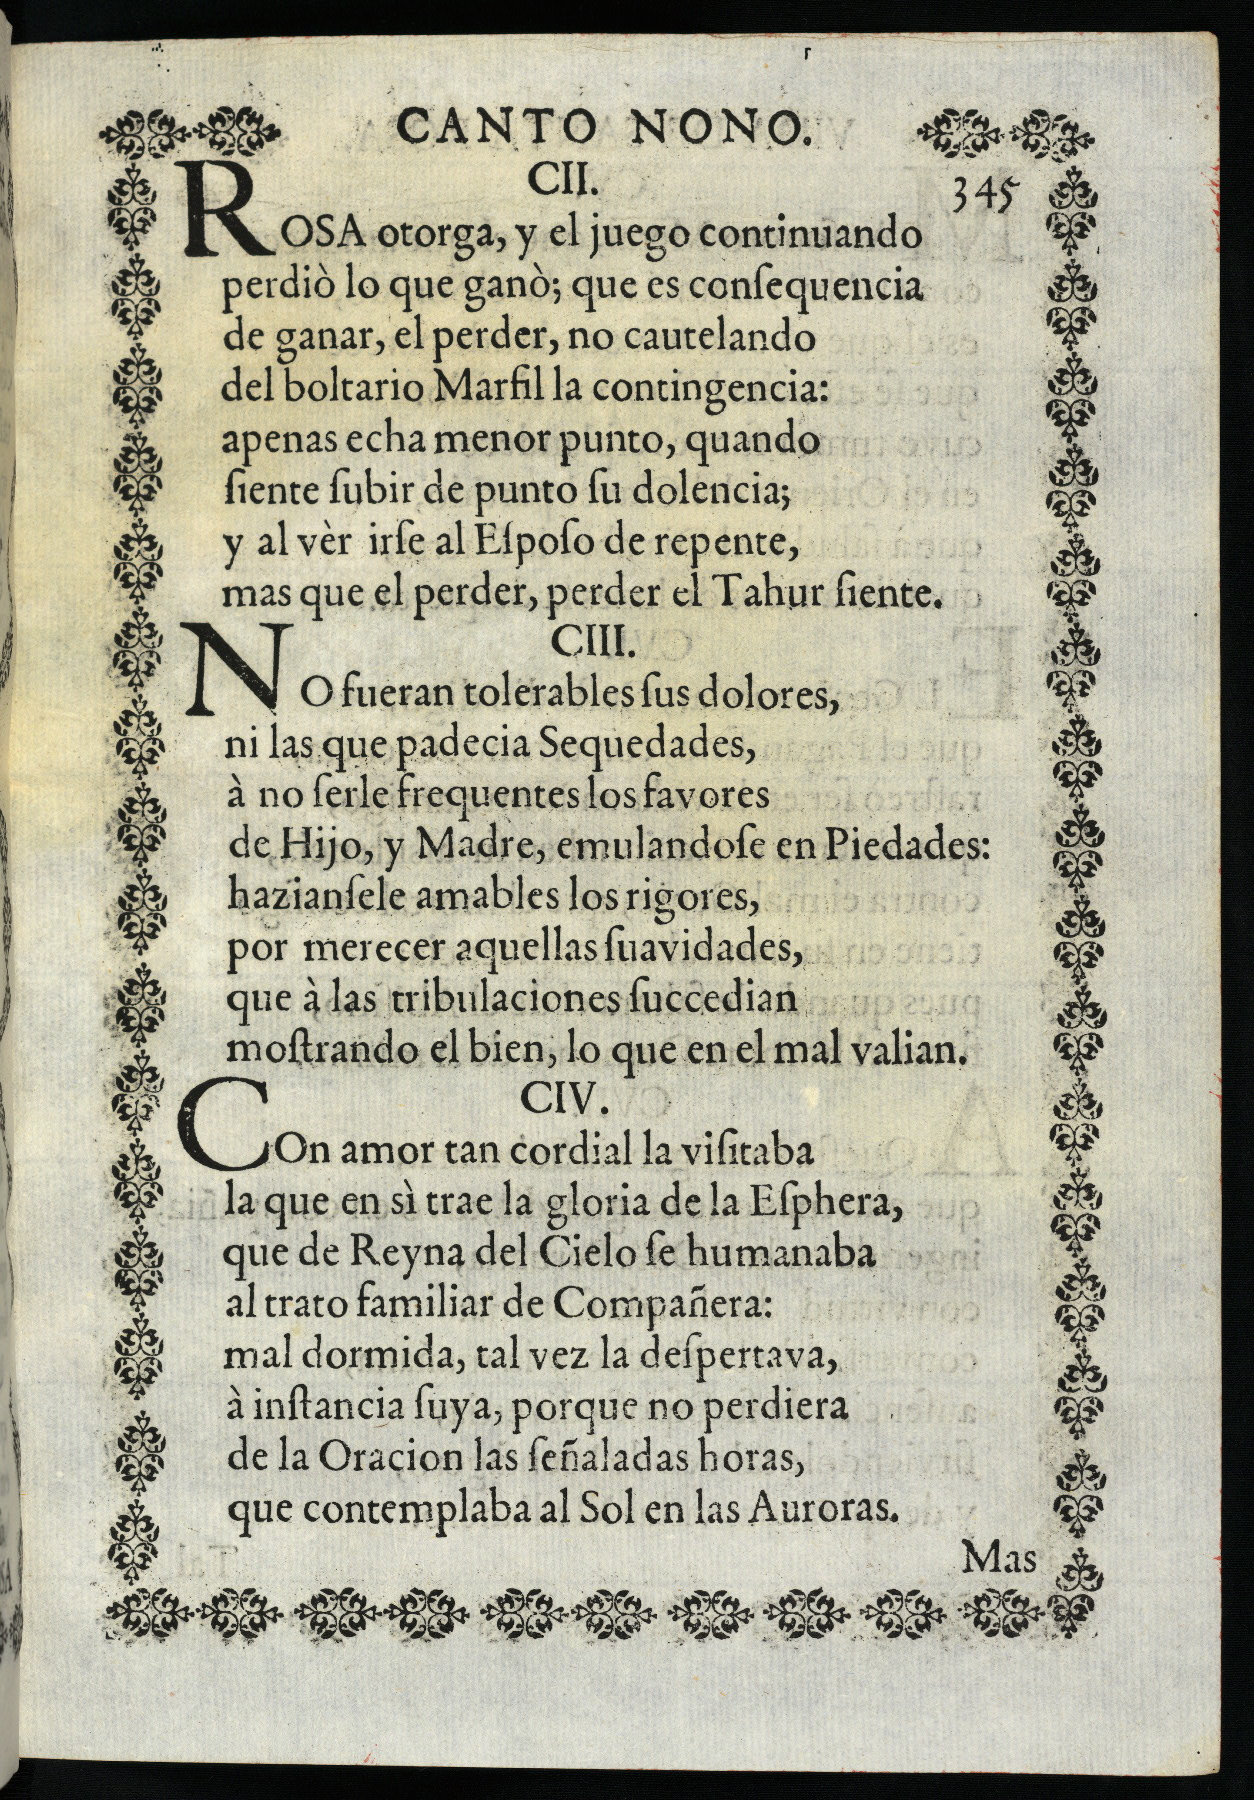 CANTO NONO.
CII.
345
ROSA otorga, y el juego continuando
perdiò lo que ganò; que es conſequencia
de ganar, el perder, no cautelando
del boltario Marfil la contingencia:
apenas echa menor punto, quando
ſiente ſubir de punto ſu dolencia;
y al vèr irſe al Eſpoſo de repente,
mas que el perder, perder el Tahur ſiente.
CIII.
NO fueran tolerables ſus dolores,
ni las que padecia Sequedades,
à no ſerle frequentes los favores
de Hijo, y Madre, emulandoſe en Piedades:
hazianſele amables los rigores,
por merecer aquellas ſuavidades,
que à las tribulaciones ſuccedian
moſtrando el bien, lo que en el mal valian.
CIV.
COn amor tan cordial la viſitaba
la que en sì trae la gloria de la Eſphera,
que de Reyna del Cielo ſe humanaba
al trato familiar de Compañera:
mal dormida, tal vez la deſpertava,
à inſtancia ſuya, porque no perdiera
de la Oracion las ſeñaladas horas,
que contemplaba al Sol en las Auroras.
Mas